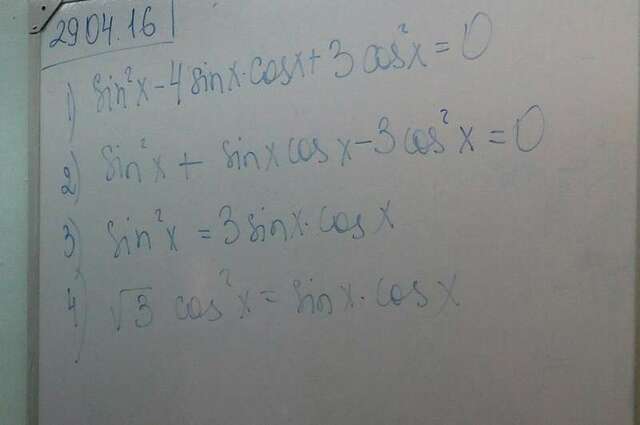 29.04.16
1) sin²x - 4 sinx·cosx + 3 cos²x = 0
2) sin²x + sinx cosx - 3 cos²x = 0
3) sin²x = 3 sinx·cosx
4) √3 cos²x = sinx·cosx